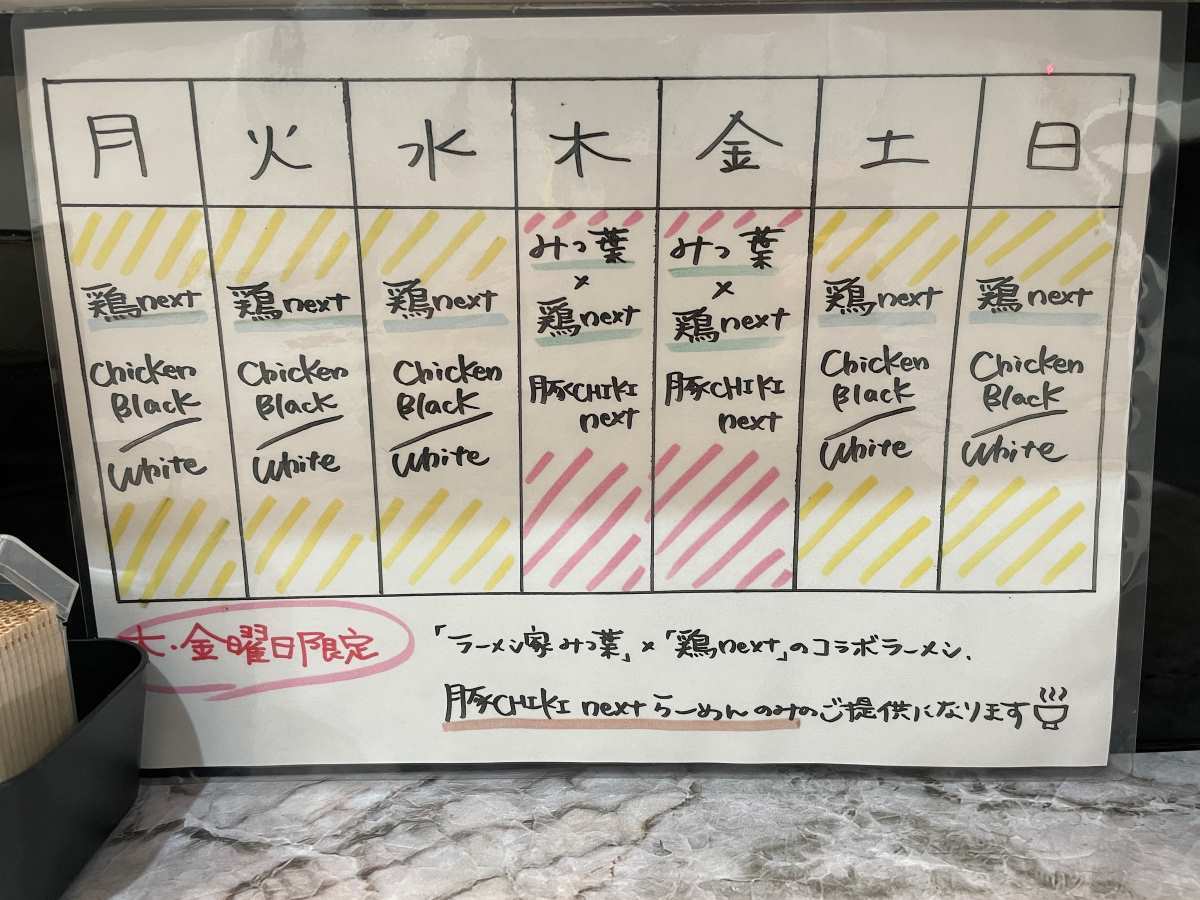 月 火 水 木 金 土 日
鶏next
Chicken
Black
White
鶏next
Chicken
Black
White
鶏next
Chicken
Black
White
みつ葉
×
鶏next
豚CHIKI
next
みつ葉
×
鶏next
豚CHIKI
next
鶏next
Chicken
Black
White
鶏next
Chicken
Black
White
木・金曜日限定
「ラーメン家みつ葉」×「鶏next」のコラボラーメン、
豚CHIKI nextらーめんのみのご提供になります